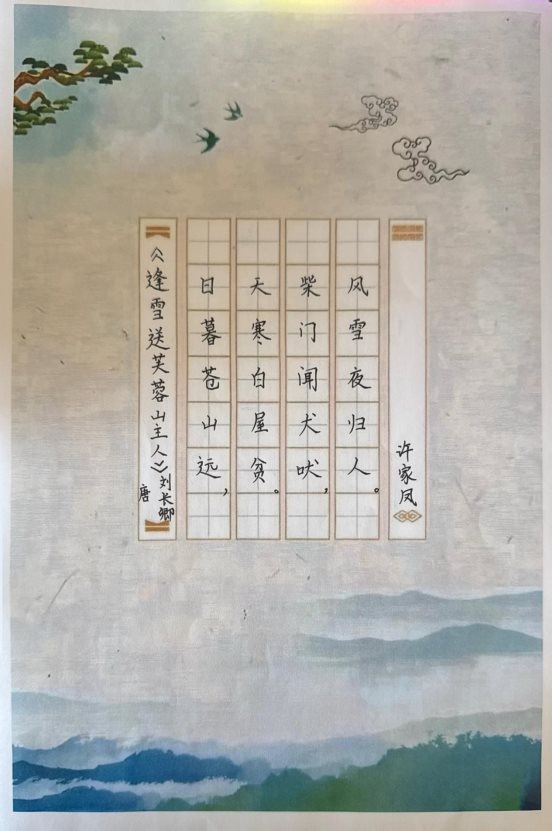 《逢雪送芙蓉山主人》
唐 刘长卿
日暮苍山远，
天寒白屋贫。
柴门闻犬吠，
风雪夜归人。
许家凤